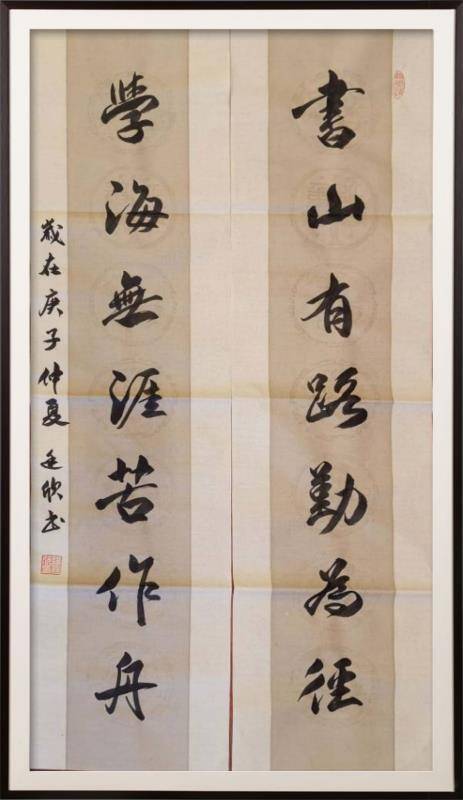 書山有路勤為徑
學海無涯苦作舟
歲在庚子仲夏 廷欣书